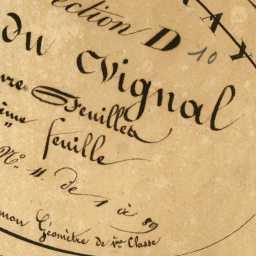 ection D 10
du Vignal
Feuilles
ime feuille
N.º 11 de 1 à 89
Géomètre de 1re Classe